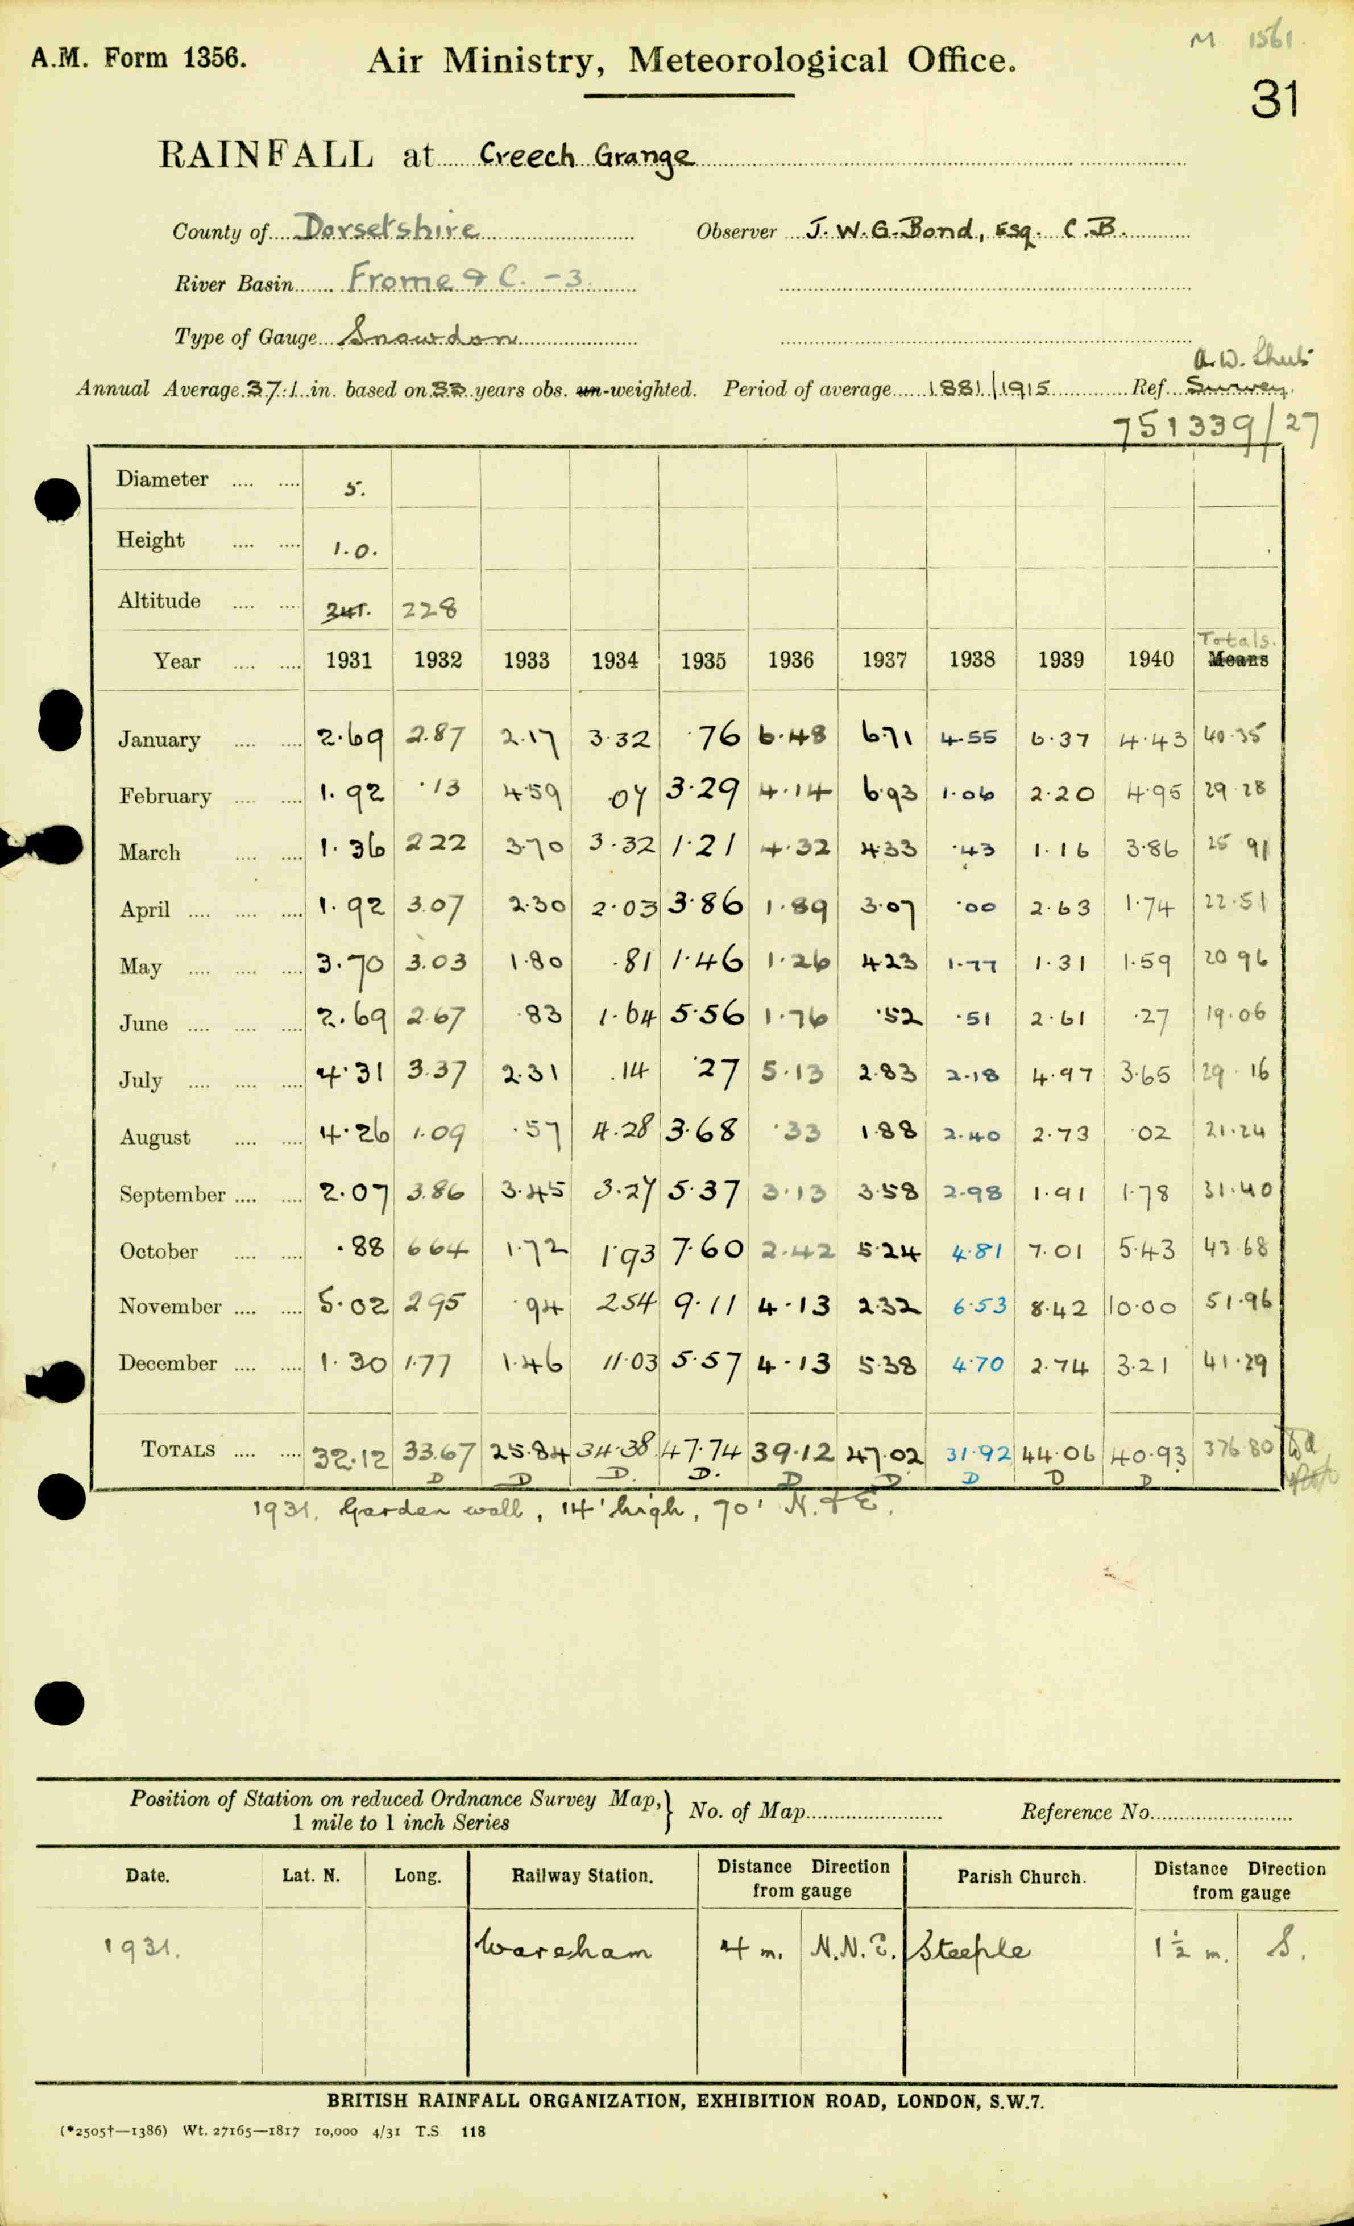 M 1561.
A.M. Form 1356. Air Ministry, Meteorological Office.
31
RAINFALL at Creech Grange
County of Dorsetshire Observer J. W. G. Bond, Esq. C.B.
River Basin Frome & C. -3.
Type of Gauge Snowdon
A.W.
Annual Average 37.1 in. based on 33 years obs. un-weighted. Period of average 1881/1915 Ref. Survey.
751339/27
Diameter 5.
Height 1.0.
Altitude 241. 228
Totals.
Year 1931 1932 1933 1934 1935 1936 1937 1938 1939 1940 Means
January 2.69 2.87 2.17 3.32 .76 6.48 6.71 4.55 6.37 4.43 40.35
February 1.92 .13 4.59 .07 3.29 4.14 6.93 1.06 2.20 4.95 29.28
March 1.36 2.22 3.70 3.32 1.21 4.32 4.33 .43 1.16 3.86 25.91
April 1.92 3.07 2.30 2.03 3.86 1.89 3.07 .00 2.63 1.74 22.51
May 3.70 3.03 1.80 .81 1.46 1.26 4.23 1.77 1.31 1.59 20.96
June 2.69 2.67 .83 1.64 5.56 1.76 .52 .51 2.61 .27 19.06
July 4.31 3.37 2.31 .14 .27 5.13 2.83 2.18 4.97 3.65 29.16
August 4.26 1.09 .57 4.28 3.68 .33 1.88 2.40 2.73 .02 21.24
September 2.07 3.86 3.45 3.27 5.37 3.13 3.58 2.98 1.91 1.78 31.40
October .88 6.64 1.72 1.93 7.60 2.42 5.24 4.81 7.01 5.43 43.68
November 5.02 2.95 .94 2.54 9.11 4.13 2.32 6.53 8.42 10.00 51.96
December 1.30 1.77 1.46 11.03 5.57 4.13 5.38 4.70 2.74 3.21 41.29
TOTALS 32.12 33.67 25.84 34.38 47.74 39.12 47.02 31.92 44.06 40.93 376.80
D D D. D. D D D D D
1931. Garden wall, 14' high, 70' N. & E.
Position of Station on reduced Ordnance Survey Map,} No. of Map Reference No.
1 mile to 1 inch Series
Date. Lat. N. Long. Railway Station. Distance Direction from gauge Parish Church. Distance Direction from gauge
1931. Wareham 4 m. N.N.E. Steeple 1½ m. S.
BRITISH RAINFALL ORGANIZATION, EXHIBITION ROAD, LONDON, S.W.7.
(*2505†—1386) Wt. 27165—1817 10,000 4/31 T.S. 118